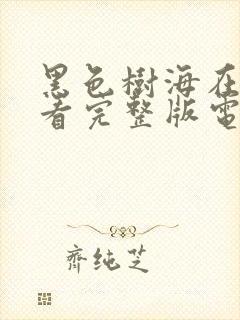 黑色樹海在
看完整版電
齊纯芝